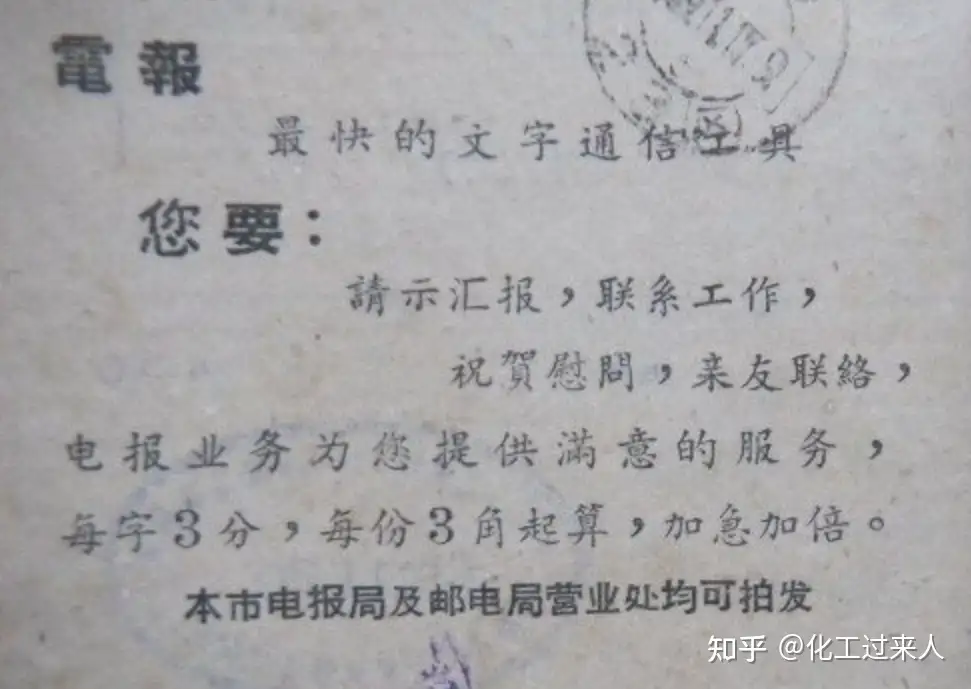 電報
最快的文字通信工具
您要：
請示汇报，联系工作，
祝賀慰問，亲友联絡，
电报业务为您提供滿意的服务，
每字3分，每份3角起算，加急加倍。
本市电报局及邮电局营业处均可拍发
知乎 @化工过来人